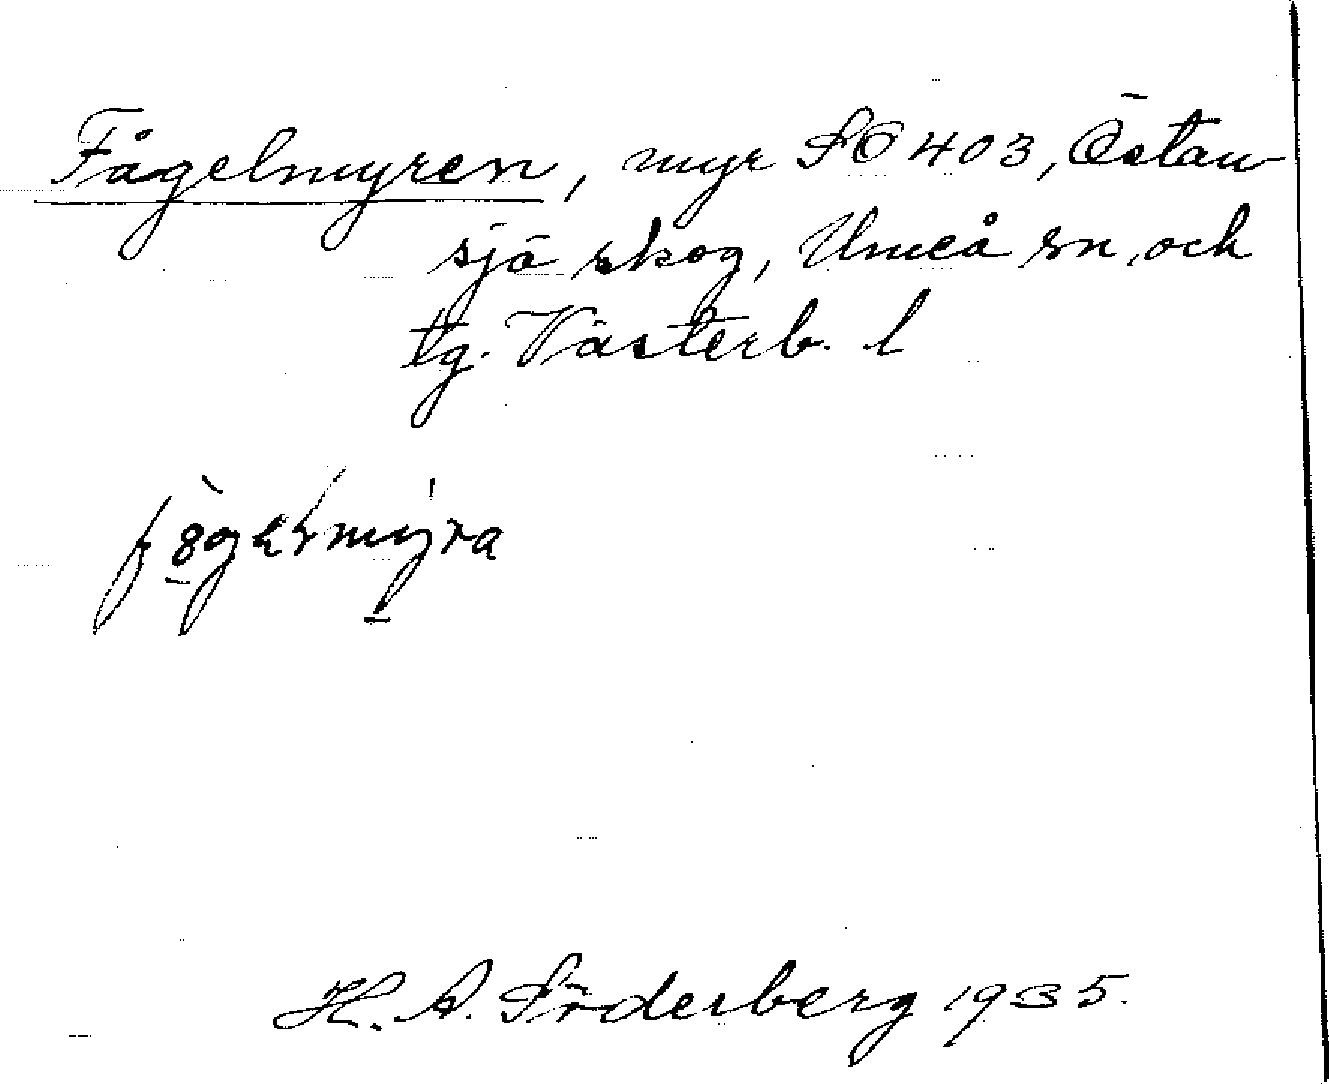 Fågelmyren, myr SO 403, Östan-
sjö skog, Umeå sn och
tg. Västerb. l
H. A. Söderberg 1935.